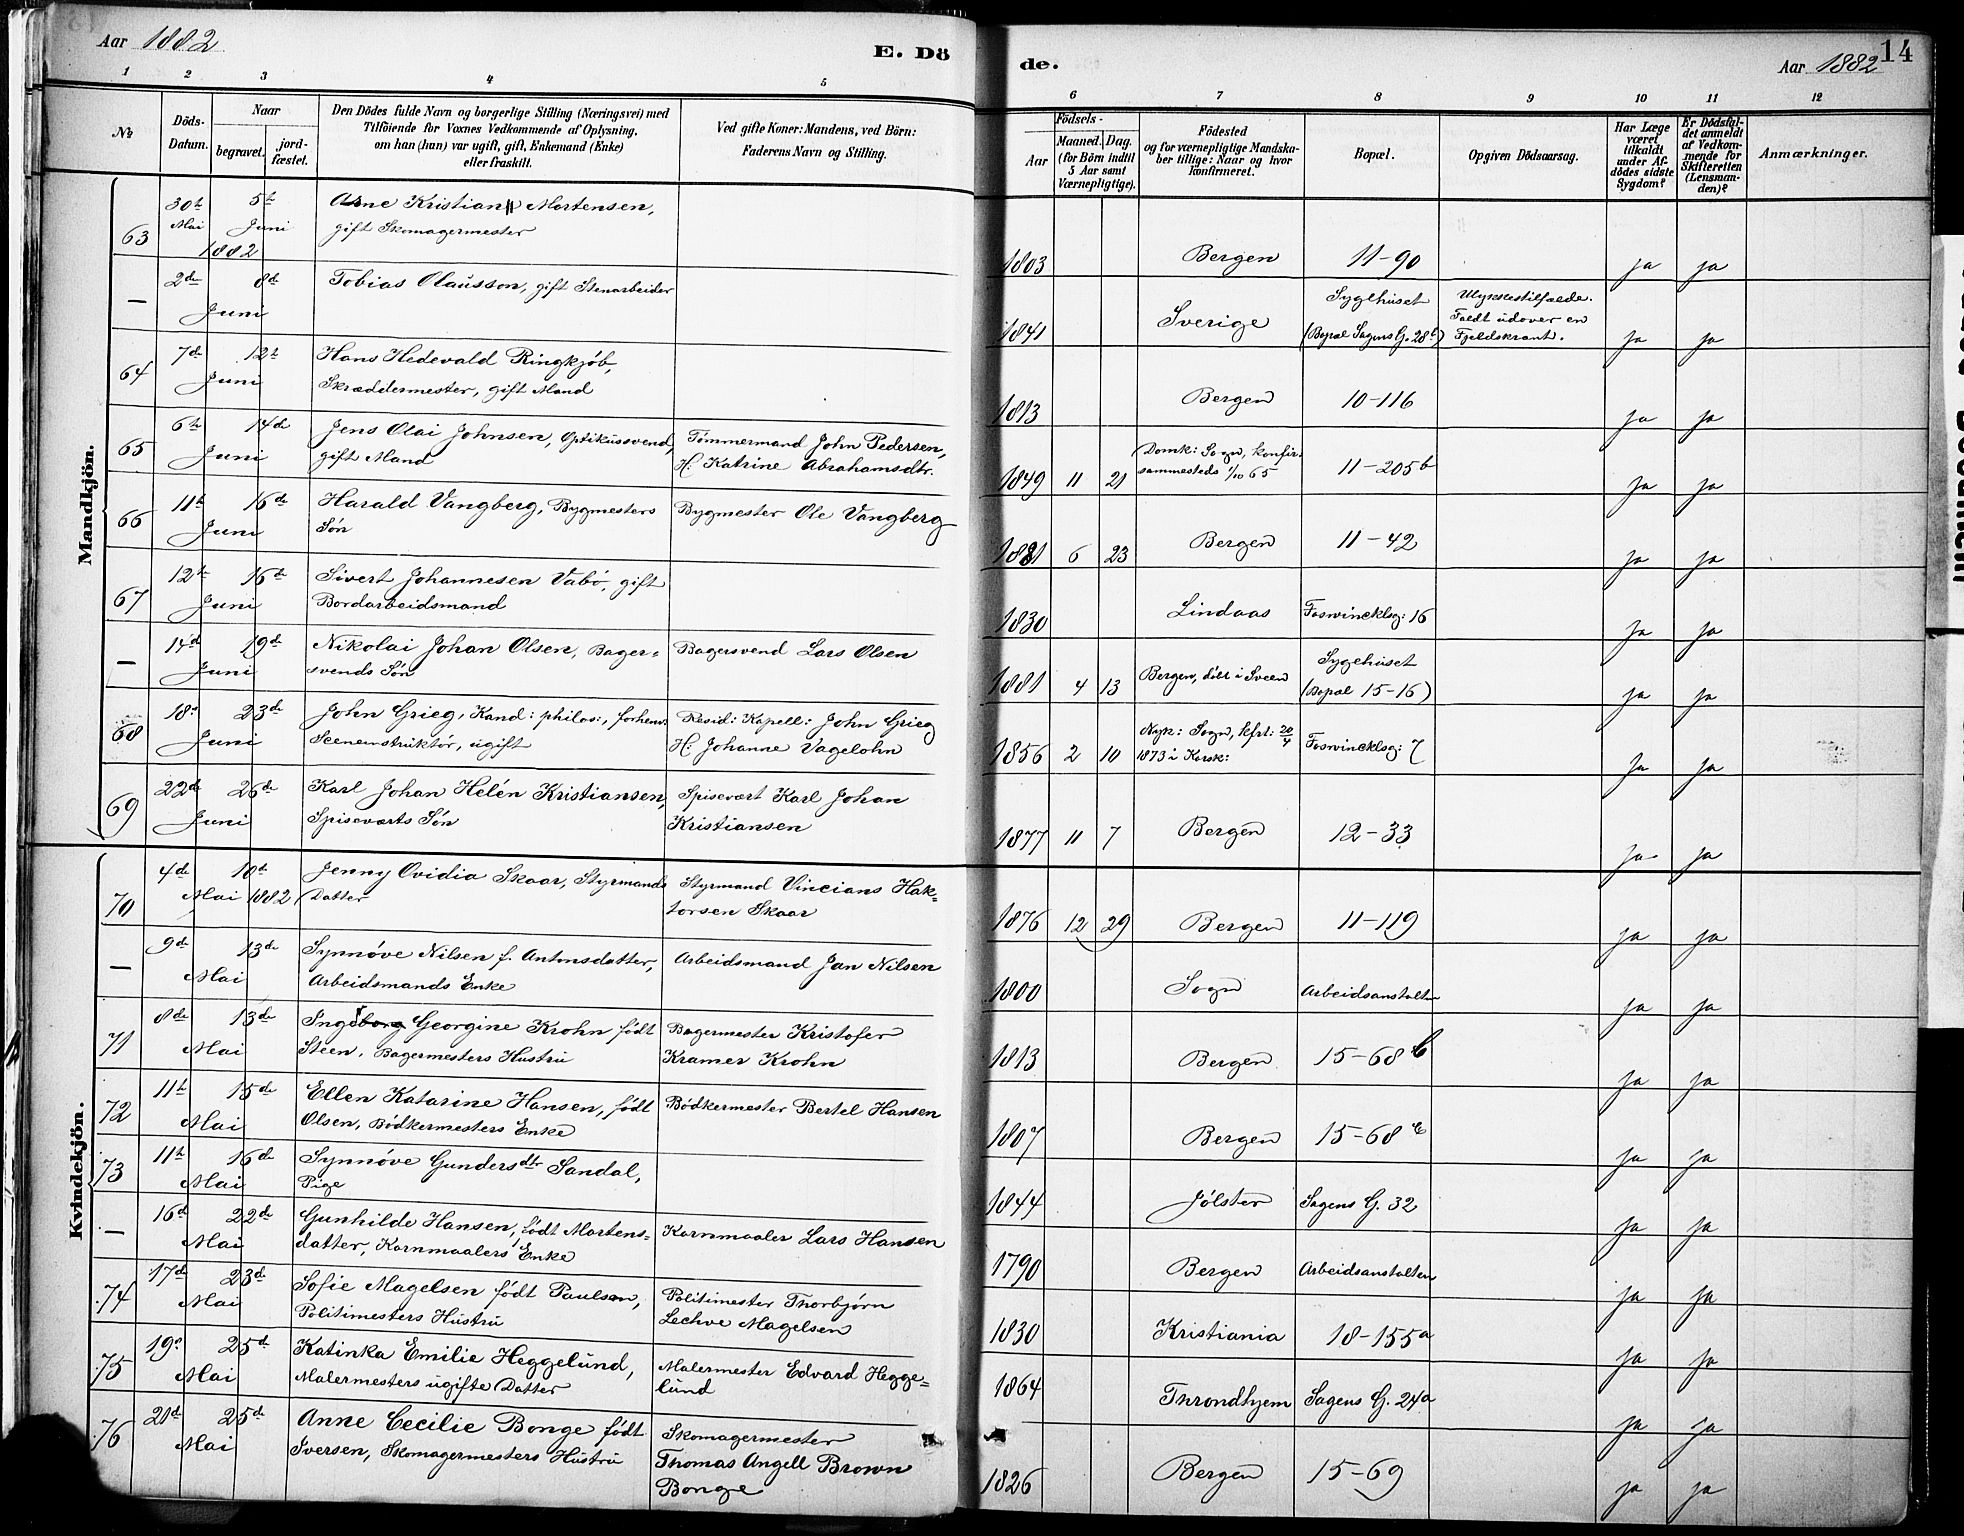 Aar 1882
E. Dö
de.
Aar 1882
14
1 2 3 4 5
6 7 8 9 10 11 12
No
Döds-Datum.
Naar
begravet.
jord-fæstet.
Den Dödes fulde Navn og borgerlige Stilling (Næringsvei) med
Tilföiende for Voxnes Vedkommende af Oplysning,
om han (hun) var ugift, gift, Enkemand (Enke)
eller fraskilt.
Ved gifte Koner: Mandens, ved Börn:
Faderens Navn og Stilling.
Födsels-
Aar
Maaned. Dag.
(for Börn indtil
5 Aar samt
Værnepligtige).
Födested
og for værnepligtige Mandska-
ber tillige: Naar og hvor
konfirmeret.
Bopæl.
Opgiven Dödsaarsag.
Har Læge
været
tilkaldt
under Af-
dödes sidste
Sygdom?
Er Dödsfal-
det anmeldt
af Vedkom-
mende for
Skifteretten
(Lensman-
den)?
Anmærkninger.
Mandkjön.
63 30te Mai 5te Juni 1882 Arne Kristian Mortensen, 1803 Bergen 11-90 ja ja
gift Skomagermester
— 2de 8de Juni Tobias Olausson, gift Stenarbeider 1841 Sverige Sygehuset Ulykkestilfælde. ja ja
(Bopæl Sagens G. 28b) Faldt udover en
Fjeldskrænt.
64 7de 12te Juni Hans Hedevald Ringkjøb, 1813 Bergen 10-116 ja ja
Skræddermester, gift Mand
65 6te 14de Juni Jens Olai Johnsen, Optikussvend, Tømmermand John Pedersen, 1849 11 21 Domk: Sogn, konfir. 11-205b ja ja
gift Mand H: Katrine Abrahamsdtr. sammesteds 1/10 65
66 11te 16de Juni Harald Vangberg, Bygmesters Bygmester Ole Vangberg 1881 6 23 Bergen 11-42 ja ja
Søn
67 12te 16de Juni Sivert Johannesen Vabø, gift 1830 Lindaas Foswincklsg: 16 ja ja
Bordarbeidsmand
— 14de 19de Juni Nikolai Johan Olsen, Bager- Bagersvend Lars Olsen 1881 4 13 Bergen, døbt i Sveen Sygehuset ja ja
svends Søn (Bopæl 15-16)
68 18de 23de Juni John Grieg, Kand: philos:, forhenv: Resid: Kapell: John Grieg 1856 2 10 Nyk: Sogn, kfrt: 20/4 Foswincklsg: 7 ja ja
Sceneinstruktør, ugift H: Johanne Vagelohn 1873 i Korsk:
69 22de 26de Juni Karl Johan Helén Kristiansen, Spisevært Karl Johan 1877 11 7 Bergen 12-33 ja ja
Spiseværts Søn Kristiansen
Kvindekjön.
70 4de 10de Mai 1882 Jenny Ovidia Skaar, Styrmands Styrmand Vincians Hak- 1876 12 29 Bergen 11-119 ja ja
Datter torsen Skaar
— 9de 13de Mai Synnøve Nilsen f. Antonsdatter, Arbeidsmand Jan Nilsen 1800 Sogn Arbeidsanstalten ja ja
Arbeidsmands Enke
71 8de 13de Mai Georgine Krohn født Bagermester Kristofer 1813 Bergen 15-68 ja ja
Steen, Bagermesters Hustru Kramer Krohn
72 11te 15de Mai Ellen Katarine Hansen, født Bødkermester Bertel Hansen 1807 Bergen 15-68 ja ja
Olsen, Bødkermesters Enke
73 11te 16de Mai Synnøve Gundersdtr Sandal, 1844 Jølster Sagens G. 32 ja ja
Pige
— 16de 22de Mai Gunhilde Hansen, født Mortens- Kornmaaler Lars Hansen 1790 Bergen Arbeidsanstalten ja ja
datter, Kornmaalers Enke
74 17de 23de Mai Sofie Magelsen født Paulsen, Politimester Thorbjørn 1830 Kristiania 18-155a ja ja
Politimesters Hustru Lechve Magelsen
75 19de 25de Mai Katinka Emilie Heggelund, Malermester Edvard Hegge- 1864 Throndhjem Sagens G. 24a ja ja
Malermesters ugifte Datter lund
76 20de 25de Mai Anne Cecilie Bonge født Skomagermester 1826 Bergen 15-69 ja ja
Iversen, Skomagermesters Hustru Thomas Angell Brown
Bonge